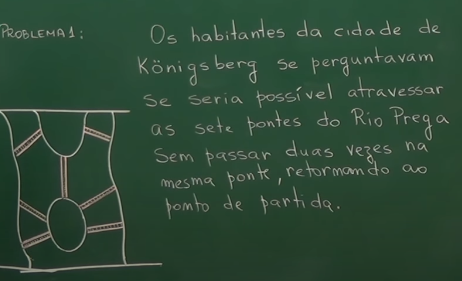 PROBLEMA 1:
Os habitantes da cidade de
Königsberg se perguntavam
se seria possível atravessar
as sete pontes do Rio Prega
sem passar duas vezes na
mesma ponte, retornando ao
ponto de partida.